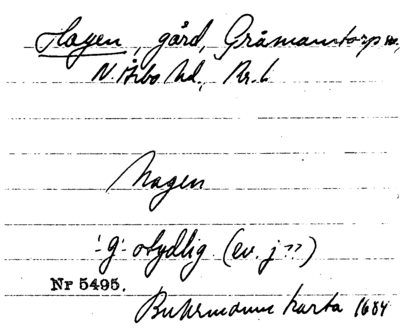 Hagen, gård, Gråmanstorp sn,
N. Åsbo hd, Kr. l.
Hagen
'-g-' otydlig (ev. j??)
Nr 5495.
Buhrmanns karta 1684